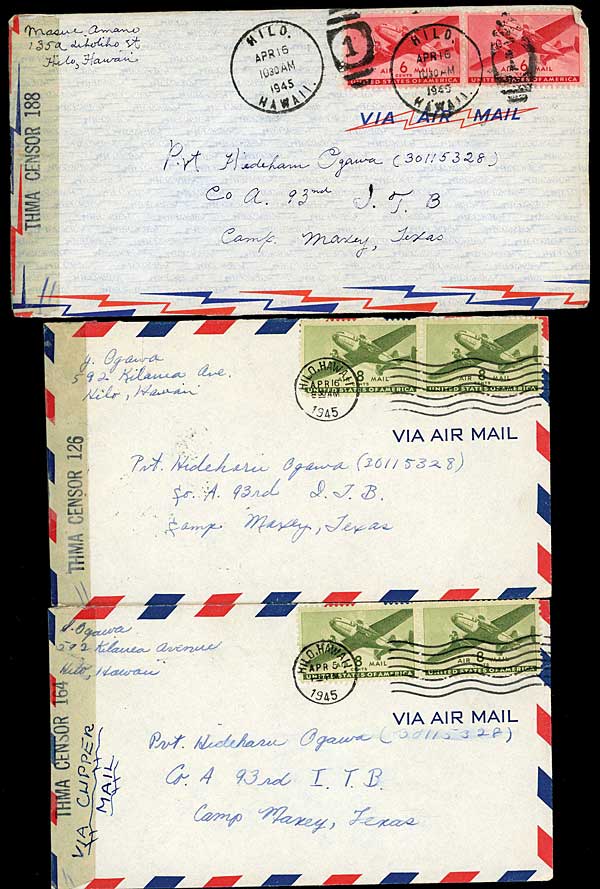 Masue Amano
135a Liholiho St
Hilo, Hawaii
HILO.
APR 16
1030 AM
1945
HAWAII.
1
HILO.
APR 16
1030 AM
1945
HAWAII.
6
CENTS
AIR MAIL
UNITED STATES OF AMERICA
6
AIR MAIL
UNITED STATES OF AMERICA
VIA AIR MAIL
THMA CENSOR 188
Pvt Hideharu Ogawa (30115328)
Co A. 93nd I. T. B
Camp. Maxey, Texas
Y. Ogawa
592 Kilauea Ave.
Hilo, Hawaii
HILO, HAWAII
APR 16
1945
8
CENTS
MAIL
UNITED STATES OF AMERICA
AIR
8
MAIL
UNITED STATES OF AMERICA
VIA AIR MAIL
THMA CENSOR 126
Pvt. Hideharu Ogawa (30115328)
Co. A. 93rd I. T. B.
Camp Maxey, Texas
Ogawa
592 Kilauea Avenue
Hilo, Hawaii
HILO, HAWAII
APR 5
1945
8
CENTS
MAIL
UNITED STATES OF AMERICA
AIR
8
MAIL
UNITED STATES OF AMERICA
VIA AIR MAIL
THMA CENSOR 164
VIA CLIPPER
MAIL
Pvt. Hideharu Ogawa (30115328)
Co. A 93rd I. T. B.
Camp Maxey, Texas